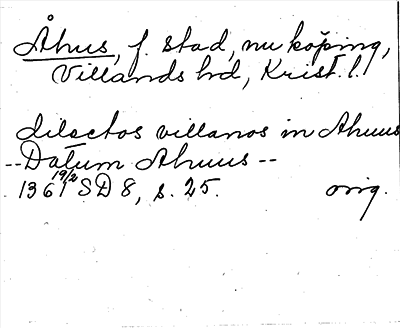 Åhus, f. stad, nu köping,
Villands hd, Krist. l.
dilectos villanos in Ahuus
-- Datum Ahuus --
1361 19/2 SD 8, s. 25. orig.